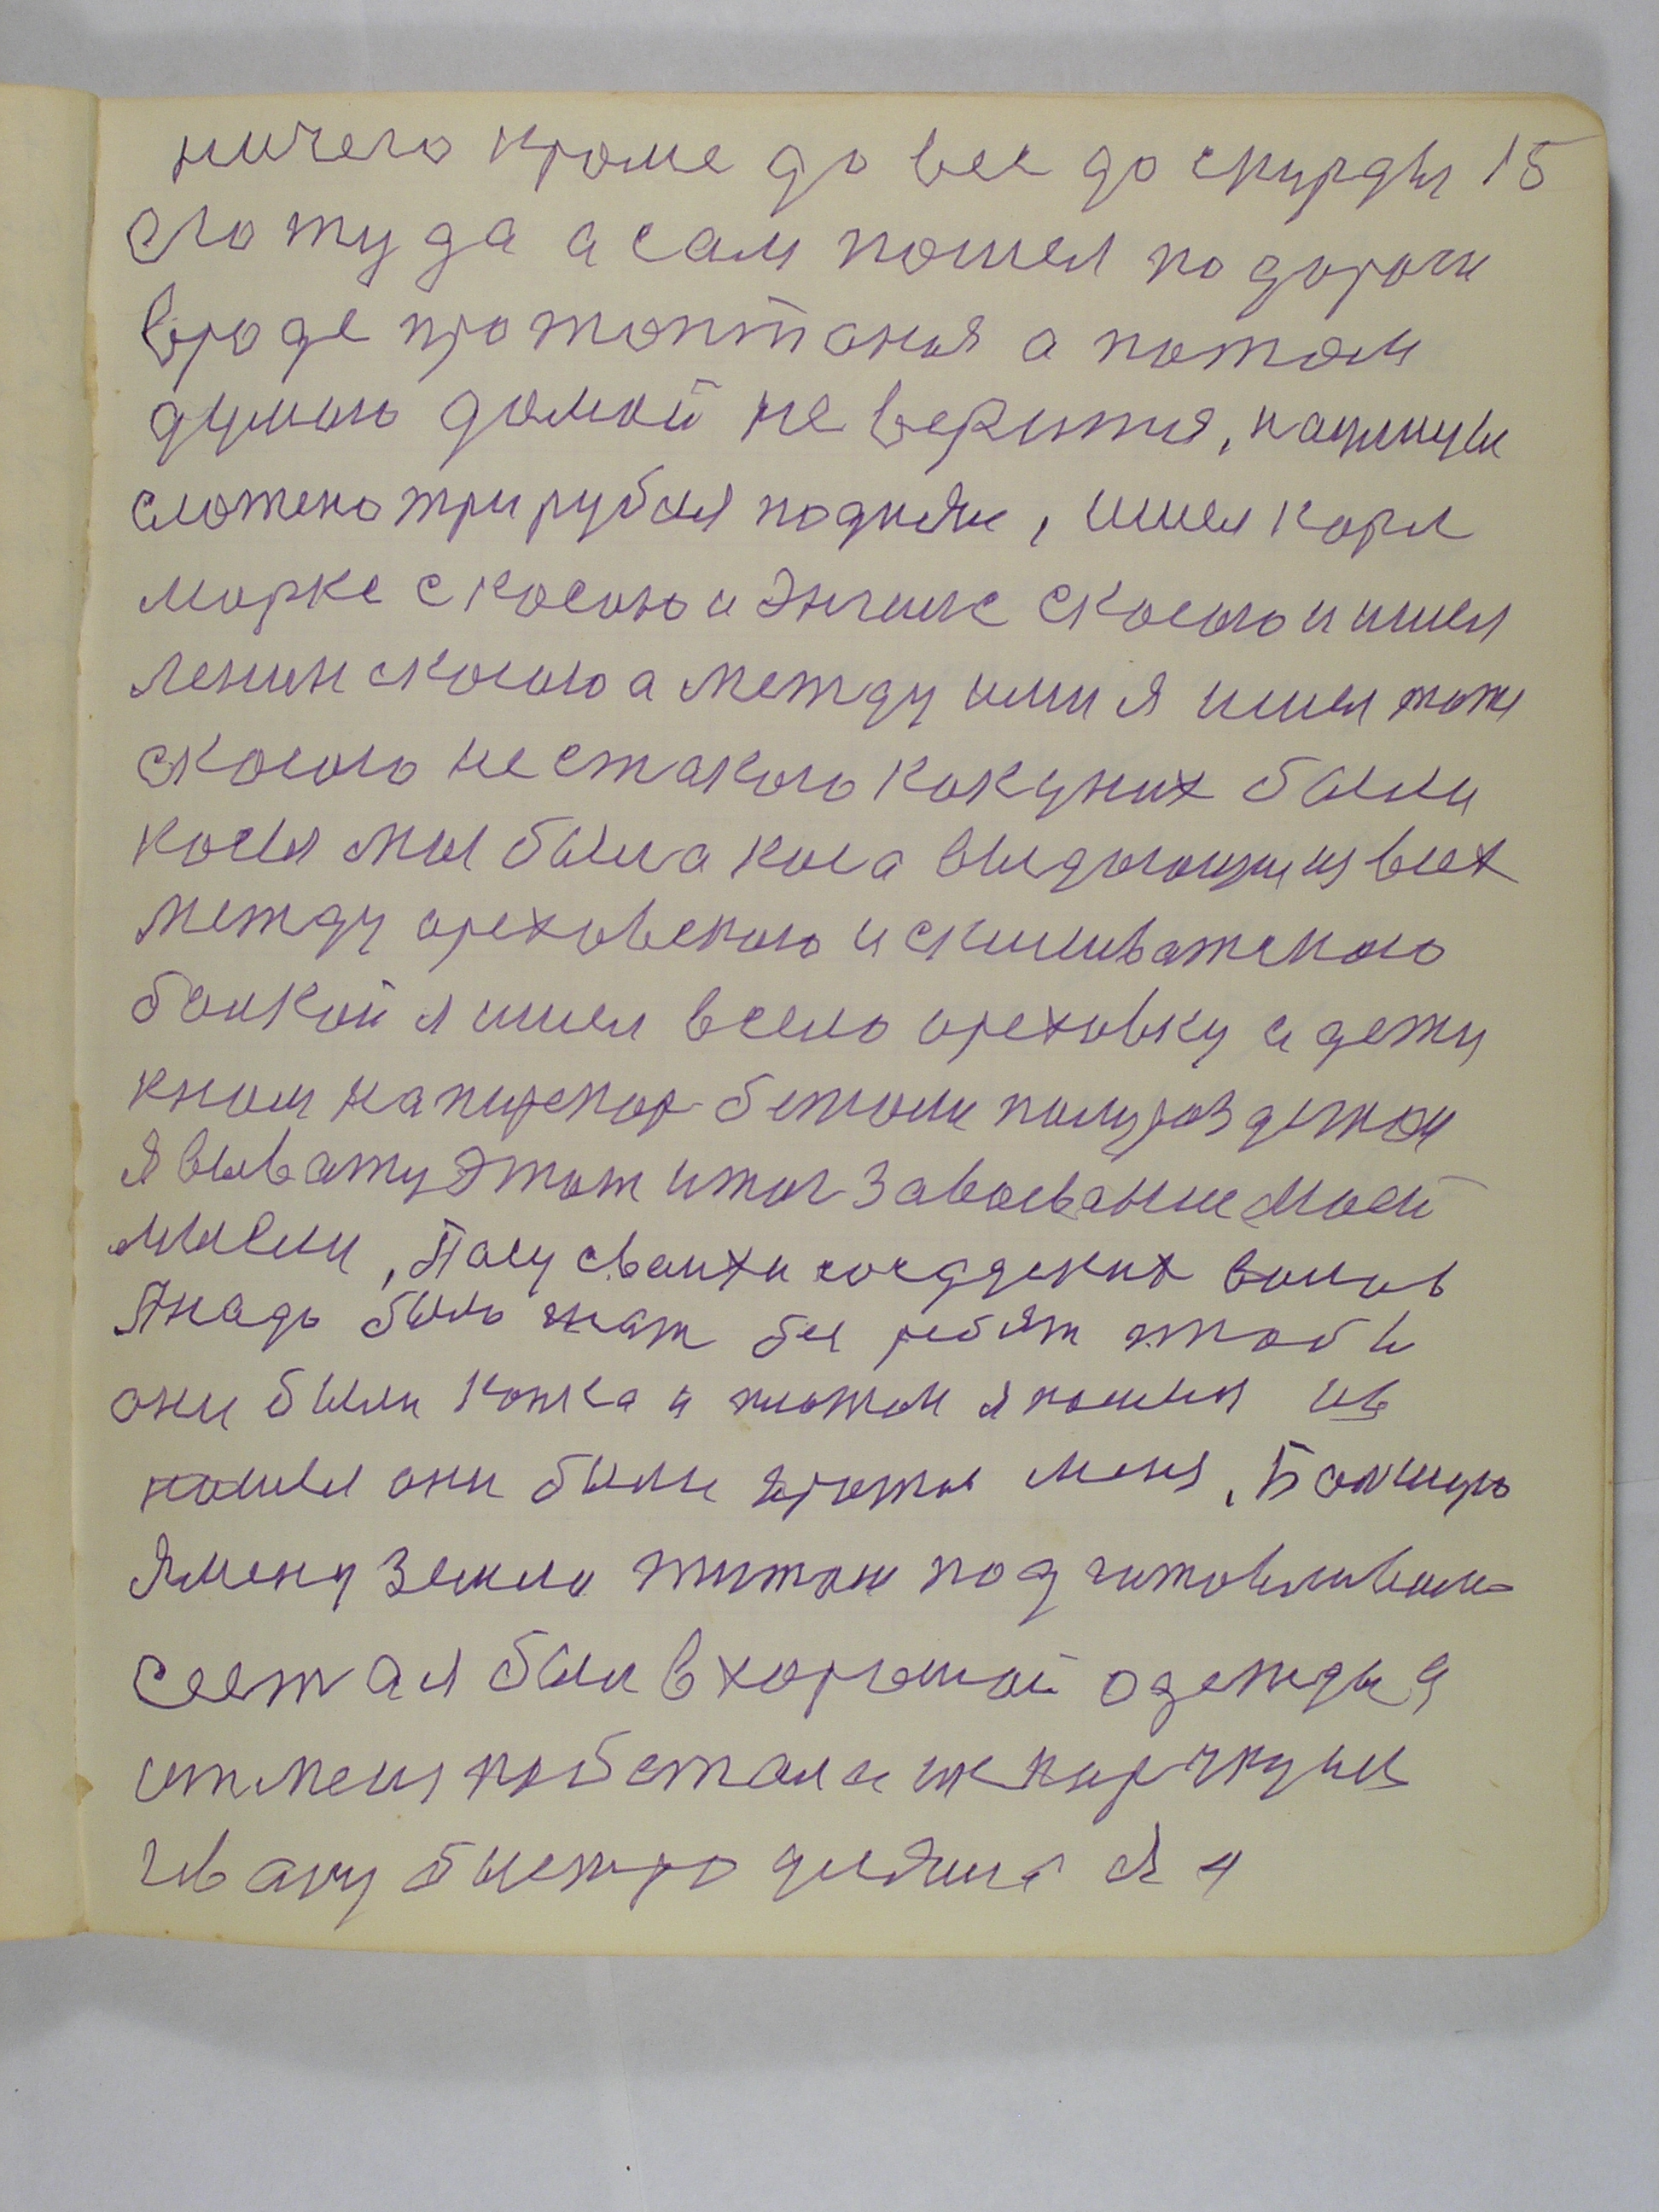 ничего кроме до вее до скирды 15
сло туда а сам пошел по дороги
вроде протоптаныя а потом
думаю домой не верится, нацинувы
сложено три рубыля подняли, ишел карл
маркс скосою и Энгилс скосою и ишел
ленин скосою а между ими я ишел тоже
скосою не стакою как у них были
косыя мы была коса выдающи из всех
между ореховскою и скиливатскою
балкой я ишел всело ореховку идету
кном напирекор бетоми полураздетом
я вывату Этот итог Завоевание моей
мысли, Пасу сваих и соседских волов
Янадо было знат бы ребят чтоб ы
они были кожса и потом я пошел ив
пошел они были против меня, Бомщую
Яменя земля питом под готовливал-
сеет а я был в хорошой одежды я
отменя робстал и
Ивану быстро Я ч